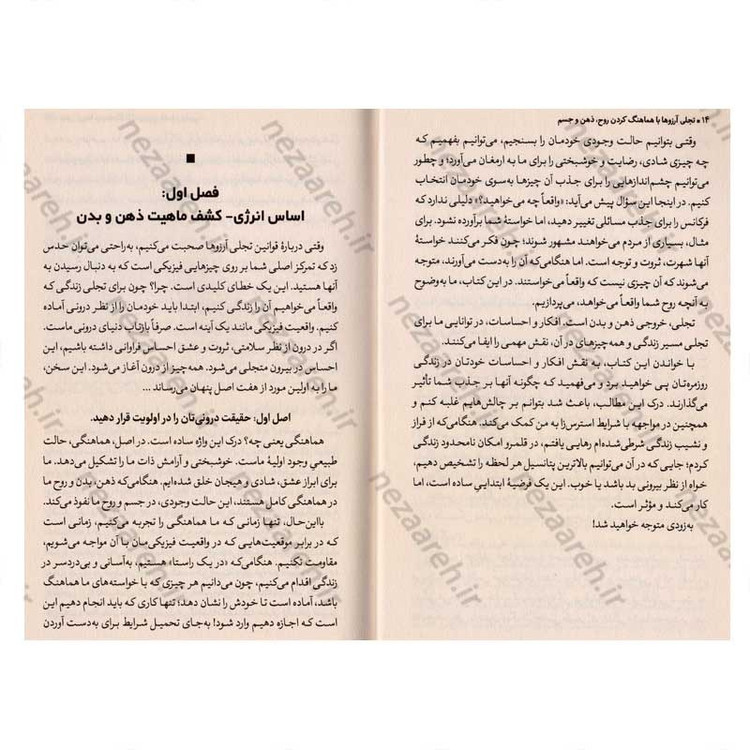 ۱۴ • تجلی آرزوها با هماهنگ کردن روح، ذهن و جسم
وقتی بتوانیم حالت وجودی خودمان را بسنجیم، می‌توانیم بفهمیم که
چه چیزی شادی، رضایت و خوشبختی را برای ما به ارمغان می‌آورد؛ و چطور
می‌توانیم چشم‌اندازهایی را برای جذب آن چیزها به‌سوی خودمان انتخاب
کنیم. در اینجا این سؤال پیش می‌آید: «واقعاً چه می‌خواهید؟» دلیلی ندارد که
فرکانس را برای جذب مسائلی تغییر دهید، اما خواستهٔ شما برآورده نشود. برای
مثال، بسیاری از مردم می‌خواهند مشهور شوند؛ چون فکر می‌کنند خواستهٔ
آنها شهرت، ثروت و توجه است. اما هنگامی‌که آن را به‌دست می‌آورند، متوجه
می‌شوند که آن چیزی نیست که واقعاً می‌خواستند. در این کتاب، ما به‌وضوح
به آنچه روح شما واقعاً می‌خواهد، می‌پردازیم.
تجلی، خروجی ذهن و بدن است. افکار و احساسات، در توانایی ما برای
تجلی مسیر زندگی و همه‌چیزهای در آن، نقش مهمی را ایفا می‌کنند.
با خواندن این کتاب، به نقش افکار و احساسات خودتان در زندگی
روزمره‌تان پی خواهید برد و می‌فهمید که چگونه آنها بر جذب شما تأثیر
می‌گذارند. درک این مطالب، باعث شد بتوانم بر چالش‌هایم غلبه کنم و
همچنین در مواجهه با شرایط استرس‌زا به من کمک می‌کند. هنگامی‌که از فراز
و نشیب زندگی شرطی‌شده‌ام رهایی یافتم، در قلمرو امکان نامحدود زندگی
کردم؛ جایی که در آن می‌توانیم بالاترین پتانسیل هر لحظه را تشخیص دهیم،
خواه از نظر بیرونی بد باشد یا خوب. این یک فرضیهٔ ابتدایی ساده است، اما
کار می‌کند و مؤثر است.
به‌زودی متوجه خواهید شد!
فصل اول:
اساس انرژی- کشف ماهیت ذهن و بدن
وقتی دربارهٔ قوانین تجلی آرزوها صحبت می‌کنیم، به‌راحتی می‌توان حدس
زد که تمرکز اصلی شما بر روی چیزهایی فیزیکی است که به دنبال رسیدن به
آنها هستید. این یک خطای کلیدی است. چرا؟ چون برای تجلی زندگی که
واقعاً می‌خواهیم آن را زندگی کنیم، ابتدا باید خودمان را از نظر درونی آماده
کنیم. واقعیت فیزیکی مانند یک آینه است. صرفاً بازتاب دنیای درونی ماست.
اگر در درون از نظر سلامتی، ثروت و عشق احساس فراوانی داشته باشیم، این
احساس، در بیرون متجلی می‌شود. همه‌چیز از درون آغاز می‌شود. این سخن،
ما را به اولین مورد از هفت اصل پنهان می‌رساند ...
اصل اول: حقیقت درونی‌تان را در اولویت قرار دهید.
هماهنگی یعنی چه؟ درک این واژه ساده است. در اصل، هماهنگی، حالت
طبیعی وجود اولیهٔ ماست. خوشبختی و آرامش ذات ما را تشکیل می‌دهد. ما
برای ابراز عشق، شادی و هیجان خلق شده‌ایم. هنگامی‌که ذهن، بدن و روح ما
در هماهنگی کامل هستند، این حالت وجودی، در جسم و روح ما نفوذ می‌کند.
بااین‌حال، تنها زمانی که ما هماهنگی را تجربه می‌کنیم، زمانی است
که در برابر موقعیت‌هایی که در واقعیت فیزیکی‌مان با آن مواجه می‌شویم،
مقاومت نکنیم. هنگامی‌که «در یک راستا» هستیم، به‌آسانی و بی‌دردسر در
زندگی اقدام می‌کنیم، چون می‌دانیم هر چیزی که با خواسته‌های ما هماهنگ
باشد، آماده است تا خودش را نشان دهد؛ تنها کاری که باید انجام دهیم این
است که اجازه دهیم وارد شود! به‌جای تحمیل شرایط برای به‌دست آوردن
nezaareh.ir
nezaareh.ir
nezaareh.ir
nezaareh.ir
nezaareh.ir
nezaareh.ir